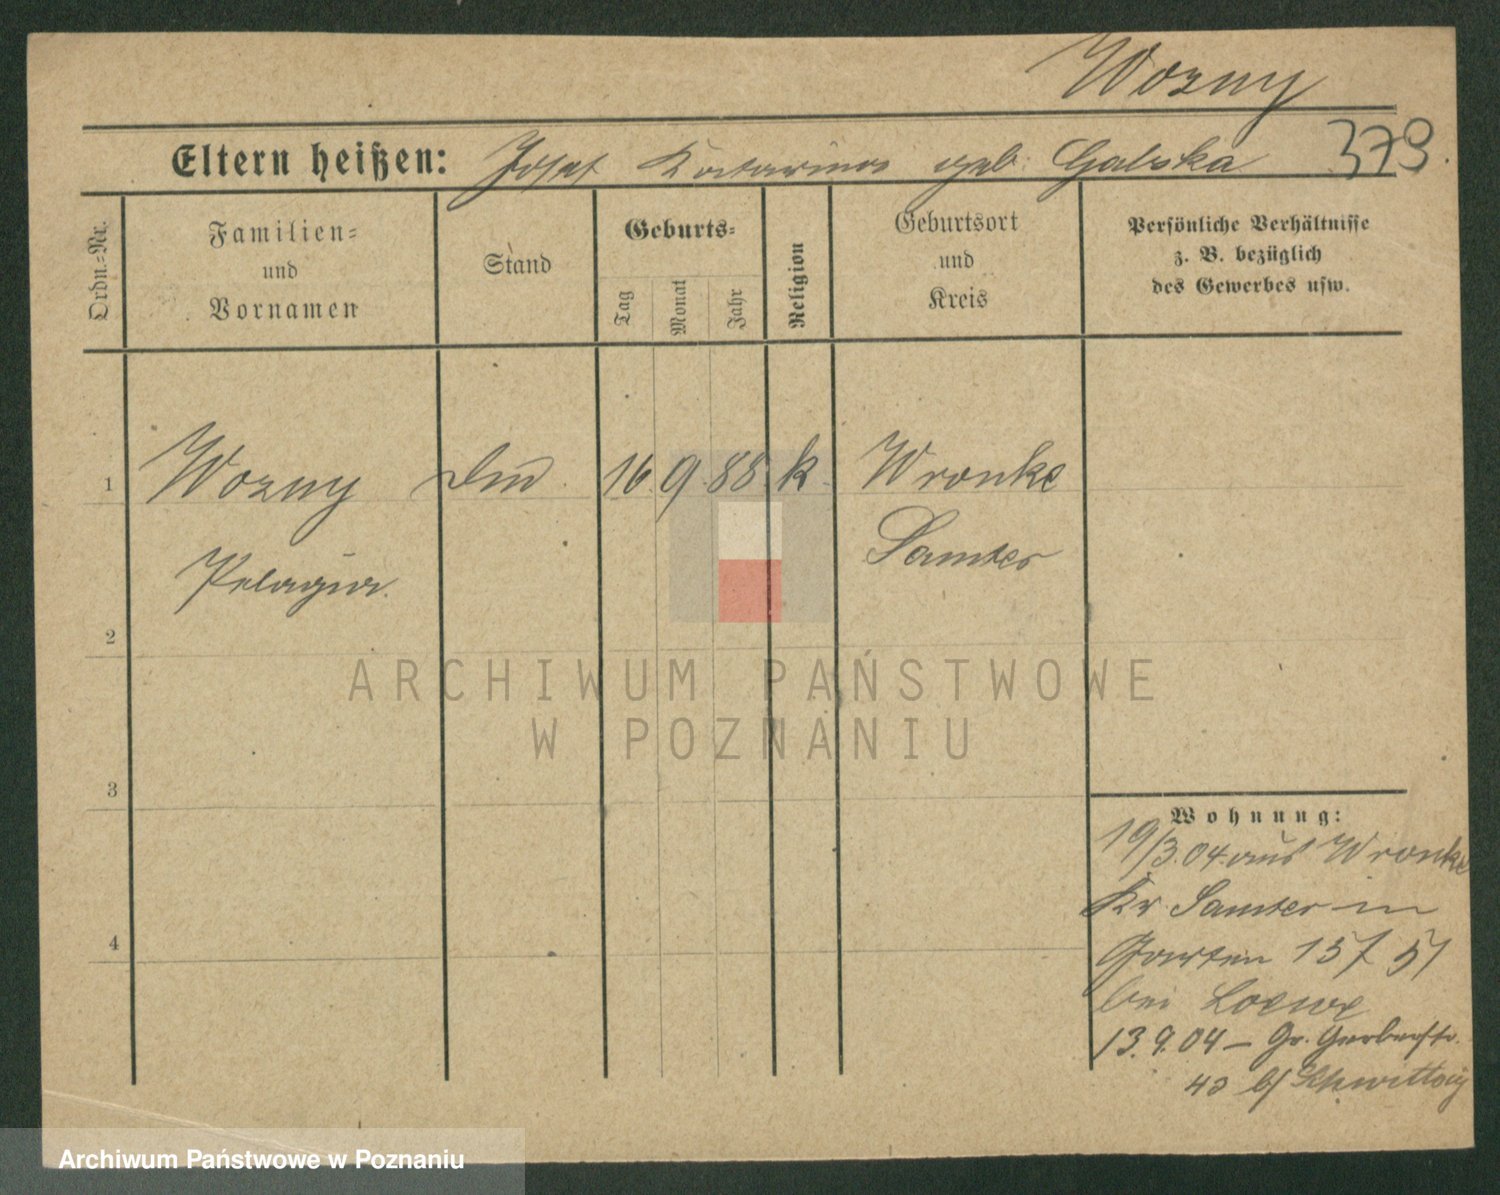 Wozny
Eltern heißen: Josef Katarina geb. Galska 379.
Ordn.-Nr.
Familien-
und
Vornamen
Stand
Geburts-
Tag
Monat
Jahr
Religion
Geburtsort
und
Kreis
Persönliche Verhältnisse
z. B. bezüglich
des Gewerbes usw.
1 Wozny 16 9. 88 k. Wronke
Pelagia. Samter
2
3
4
Wohnung:
19/3.04. aus Wronke
Kr Samter in
Garten
bei Loewe
13.9.04 – Gr. Gerberstr.
43 b/
ARCHIWUM PAŃSTWOWE
W POZNANIU
Archiwum Państwowe w Poznaniu